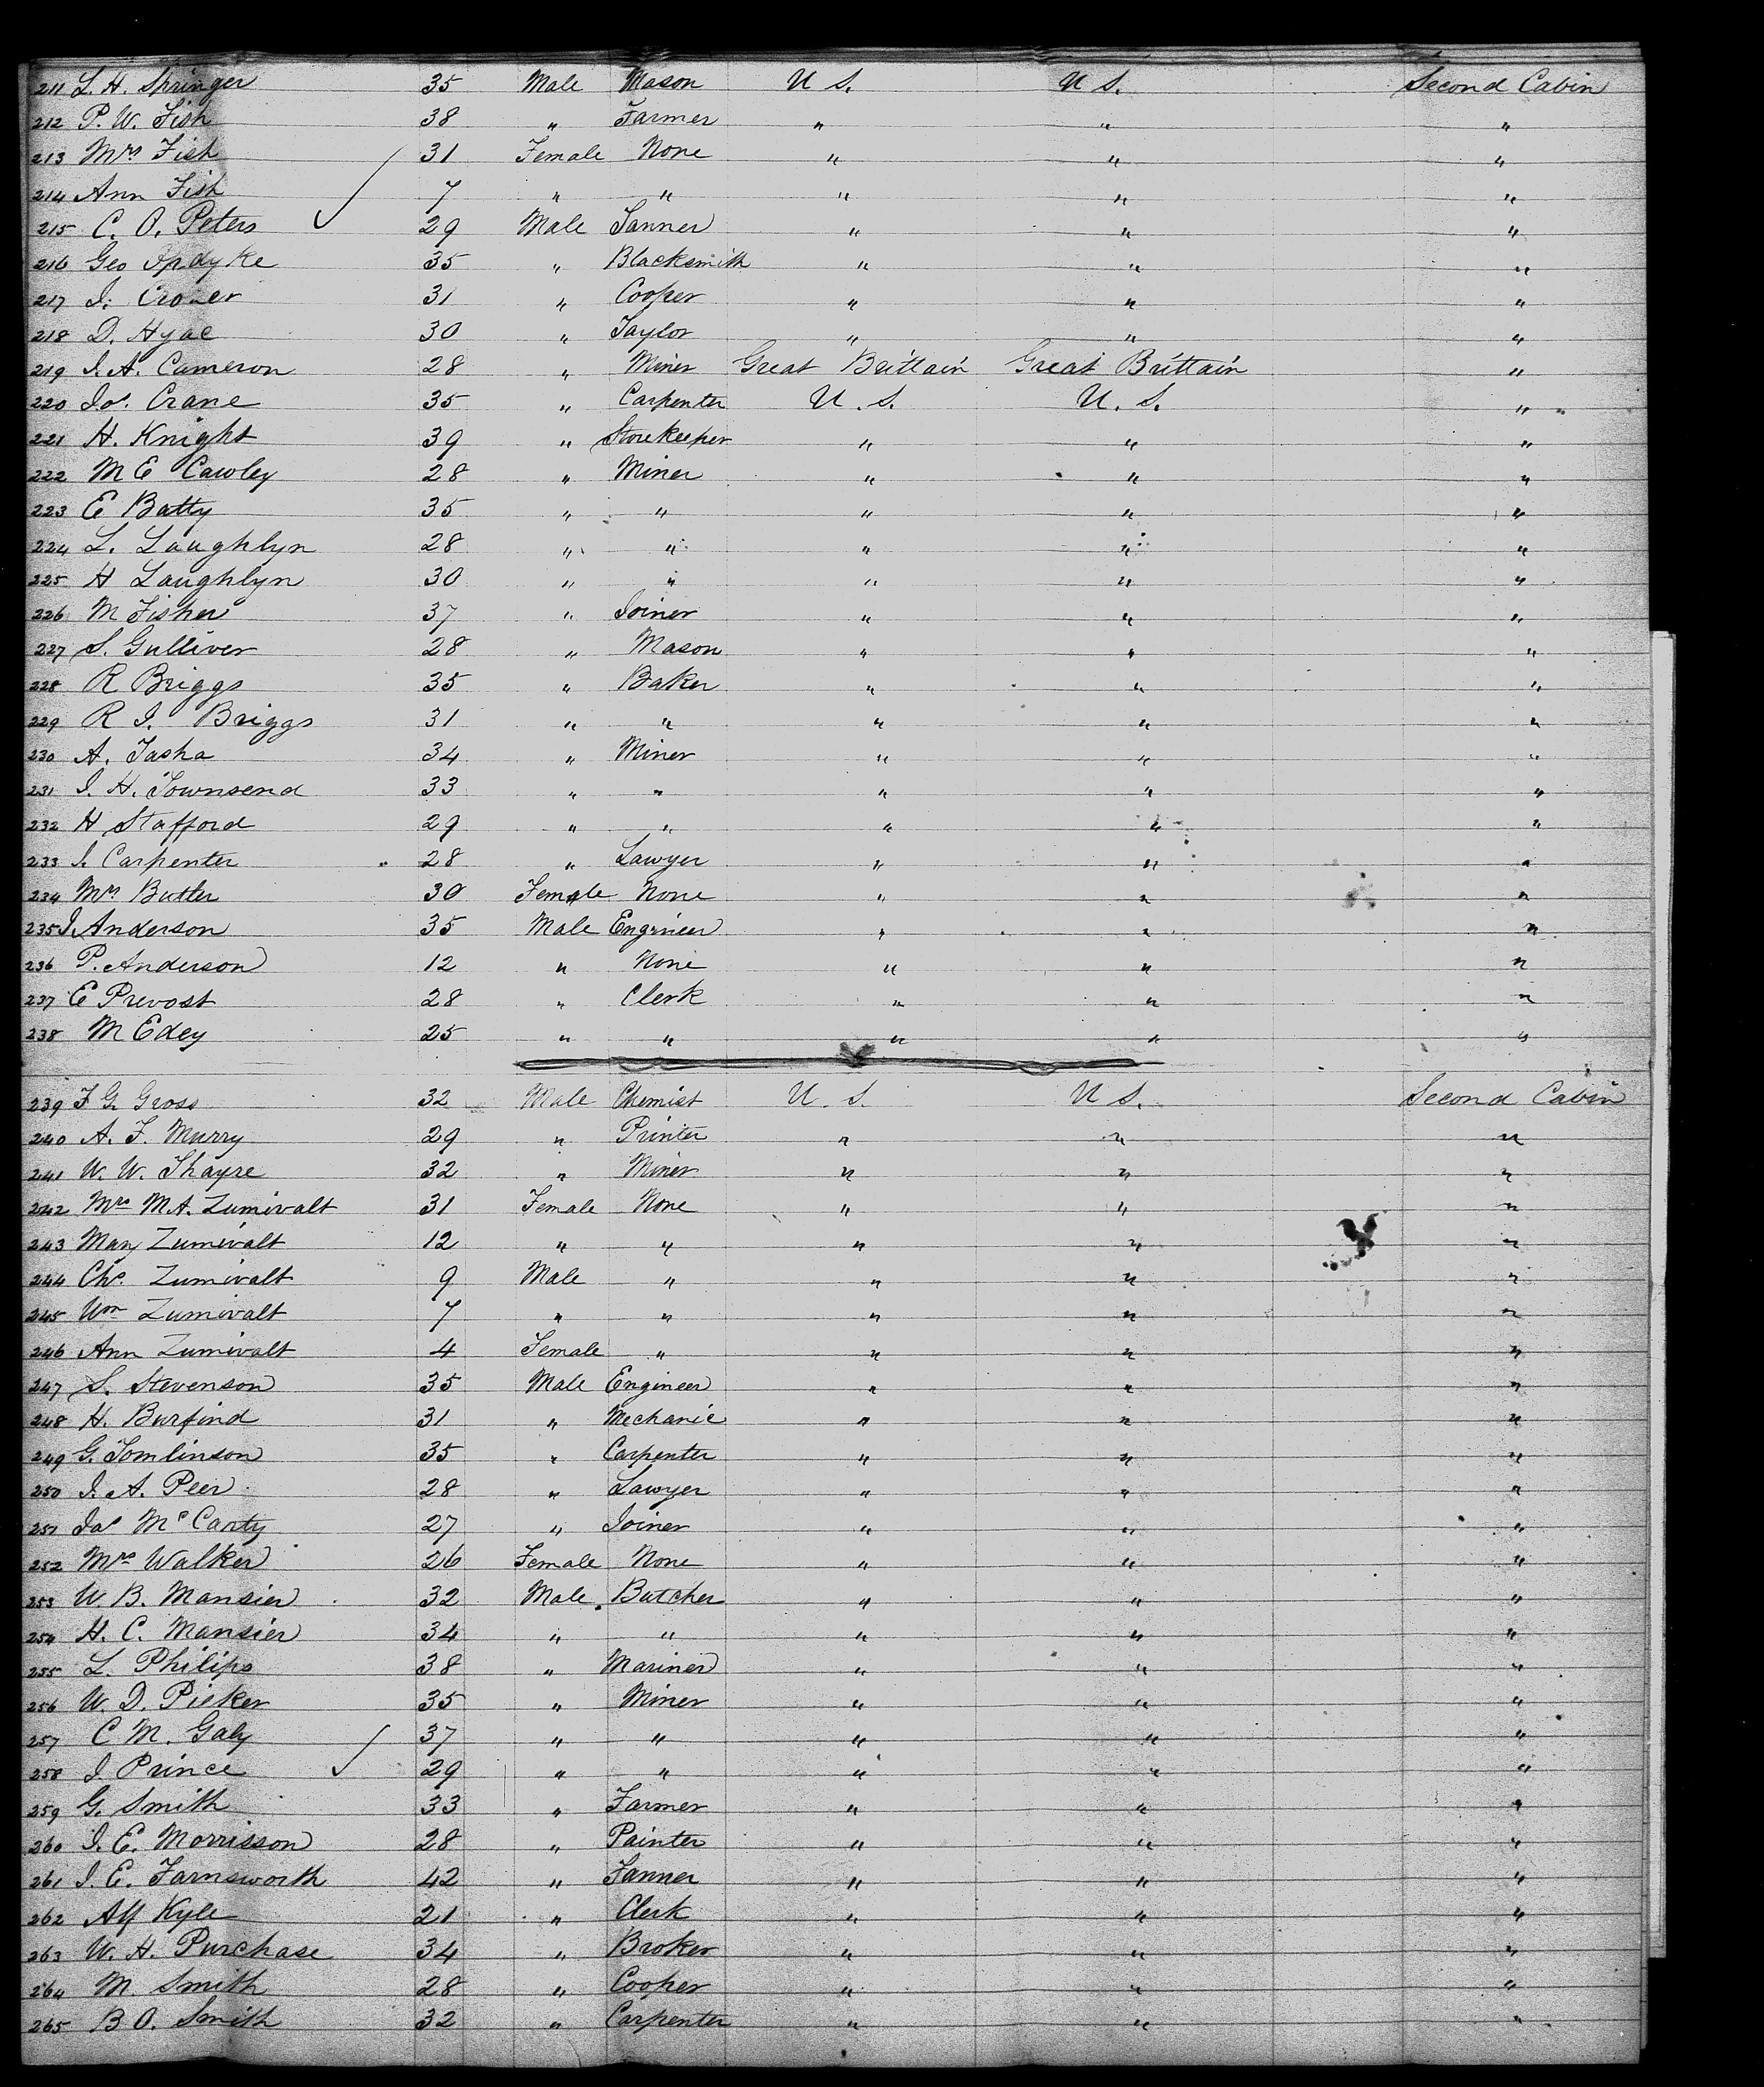 211 L. H. Springer 35 Male Mason U S. U S. Second Cabin
212 P. W. Fish 38 " Farmer " " "
213 Mrs Fish 31 Female None " " "
214 Ann Fish 7 " " " " "
215 C. O. Peters 29 Male Tanner " " "
216 Geo Opdyke 35 " Blacksmith " " "
217 I. 31 " Cooper " " "
218 D. Hyae 30 " Taylor " " "
219 I. A. Cameron 28 " Miner Great Brittain Great Brittain "
220 Jos. Crane 35 " Carpenter U. S. U. S. "
221 H. Knight 39 " Storekeeper " " "
222 M E Cawley 28 " Miner " " "
223 E Batty 35 " " " " "
224 L. Laughlyn 28 " " " " "
225 H Laughlyn 30 " " " " "
226 M Fisher 37 " Joiner " " "
227 S. Gulliver 28 " Mason " " "
228 R Briggs 35 " Baker " " "
229 R I. Briggs 31 " " " " "
230 A. Tasha 34 " Miner " " "
231 I. H. Townsend 33 " " " " "
232 H Stafford 29 " " " " "
233 I. Carpenter 28 " Lawyer " " "
234 Mrs Butler 30 Female None " " "
235 I. Anderson 35 Male Engineer " " "
236 P. Anderson 12 " None " " "
237 E Prevost 28 " Clerk " " "
238 M Edey 25 " " " " "
239 F G. Gross 32 Male Chemist U. S. U S. Second Cabin
240 A. F. Murry 29 " Printer " " "
241 W. W. Thayre 32 " Miner " " "
242 Mrs M A. Zumivalt 31 Female None " " "
243 Mary Zumivalt 12 " " " " "
244 Chs. Zumivalt 9 Male " " " "
245 Wm Zumivalt 7 " " " " "
246 Ann Zumivalt 4 Female " " " "
247 S. Stevenson 35 Male Engineer " " "
248 H. Burfind 31 " Mechanic " " "
249 G. Tomlinson 35 " Carpenter " " "
250 I. A. Peer 28 " Lawyer " " "
251 Jas McCarty 27 " Joiner " " "
252 Mrs Walker 26 Female None " " "
253 W. B. Mansier 32 Male Butcher " " "
254 H. C. Mansier 34 " " " " "
255 L. Philips 38 " Mariner " " "
256 W. D. Picker 35 " Miner " " "
257 C M. Galy 37 " " " " "
258 I Prince 29 " " " " "
259 G. Smith 33 " Farmer " " "
260 I. E. Morrisson 28 " Painter " " "
261 I. E. Farnsworth 42 " Tanner " " "
262 Alf Kyle 21 " Clerk " " "
263 W. H. Purchase 34 " Broker " " "
264 M. Smith 28 " Cooper " " "
265 B O. Smith 32 " Carpenter " " "